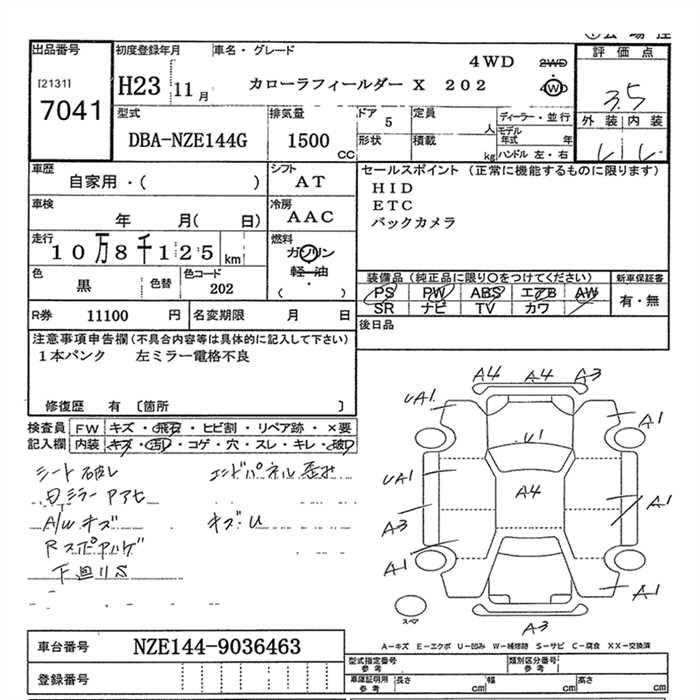 出品番号 初度登録年月 車名・グレード 評価点
[2131] 7041
H23 11月
カローラフィールダー X 202
4WD 2WD
4WD
3.5
外装 内装
型式 排気量 ドア 定員 ディーラー・並行
DBA-NZE144G 1500 CC 5 人 モデル年式 年
形状 積載 kg ハンドル 左・右
車歴 シフト セールスポイント (正常に機能するものに限ります)
自家用・( ) AT HID
車検 冷房 ETC
年 月( 日) AAC バックカメラ
走行 燃料
10万8千125 km ガソリン
軽・油
( ・ )
色 色替 色コード 装備品(純正品に限り○をつけてください) 新車保証書
黒 202 PS PW ABS エアB AW 有・無
SR ナビ TV カワ
R券 11100 円 名変期限 月 日 後日品
注意事項申告欄(不具合内容等は具体的に記入して下さい)
1本パンク 左ミラー電格不良
修復歴 有 〔箇所 〕
検査員 FW キズ・飛石・ヒビ割・リペア跡・×要
記入欄 内装 キズ・汚レ・コゲ・穴・スレ・キレ・破レ
シート破レ エンドパネル歪み
A/Wキズ キズ・U
下廻りS
A4 A4 A3
UA1 A1
U1
UA1 A4 A1
A3
A1 A1
スペア
A3
A-キズ E-エクボ U-凹み W-補修跡 S-サビ C-腐食 XX-交換済
車台番号 NZE144-9036463
型式指定番号 参考 類別区分番号 参考
登録番号 車庫証明用 参考 長さ cm 幅 cm 高さ cm